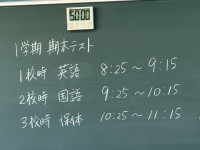 50:00
1学期 期末テスト
1校時 英語 8:25～9:15
2校時 国語 9:25～10:15
3校時 保体 10:25～11:15